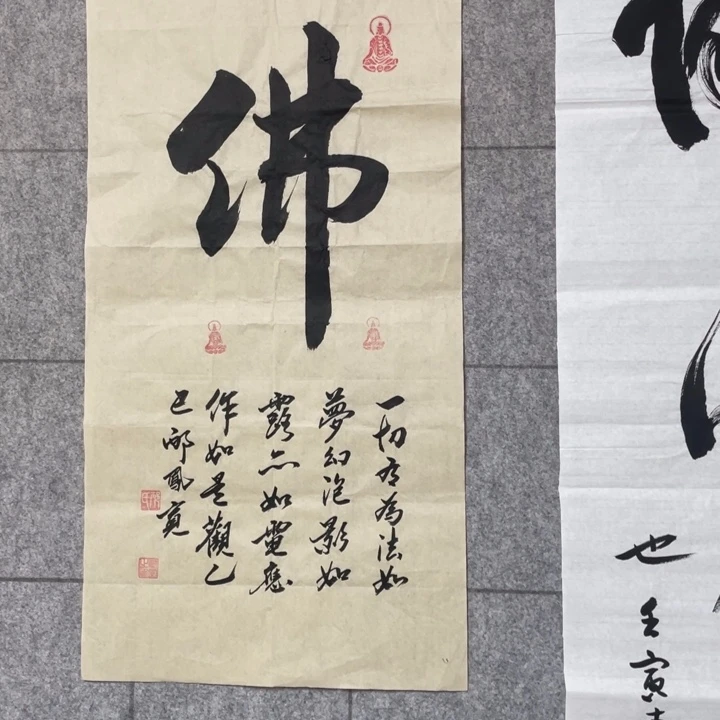 佛
一切有為法如
夢幻泡影如
露亦如電應
作如是觀乙
巳鄺鳳寬
也
壬寅